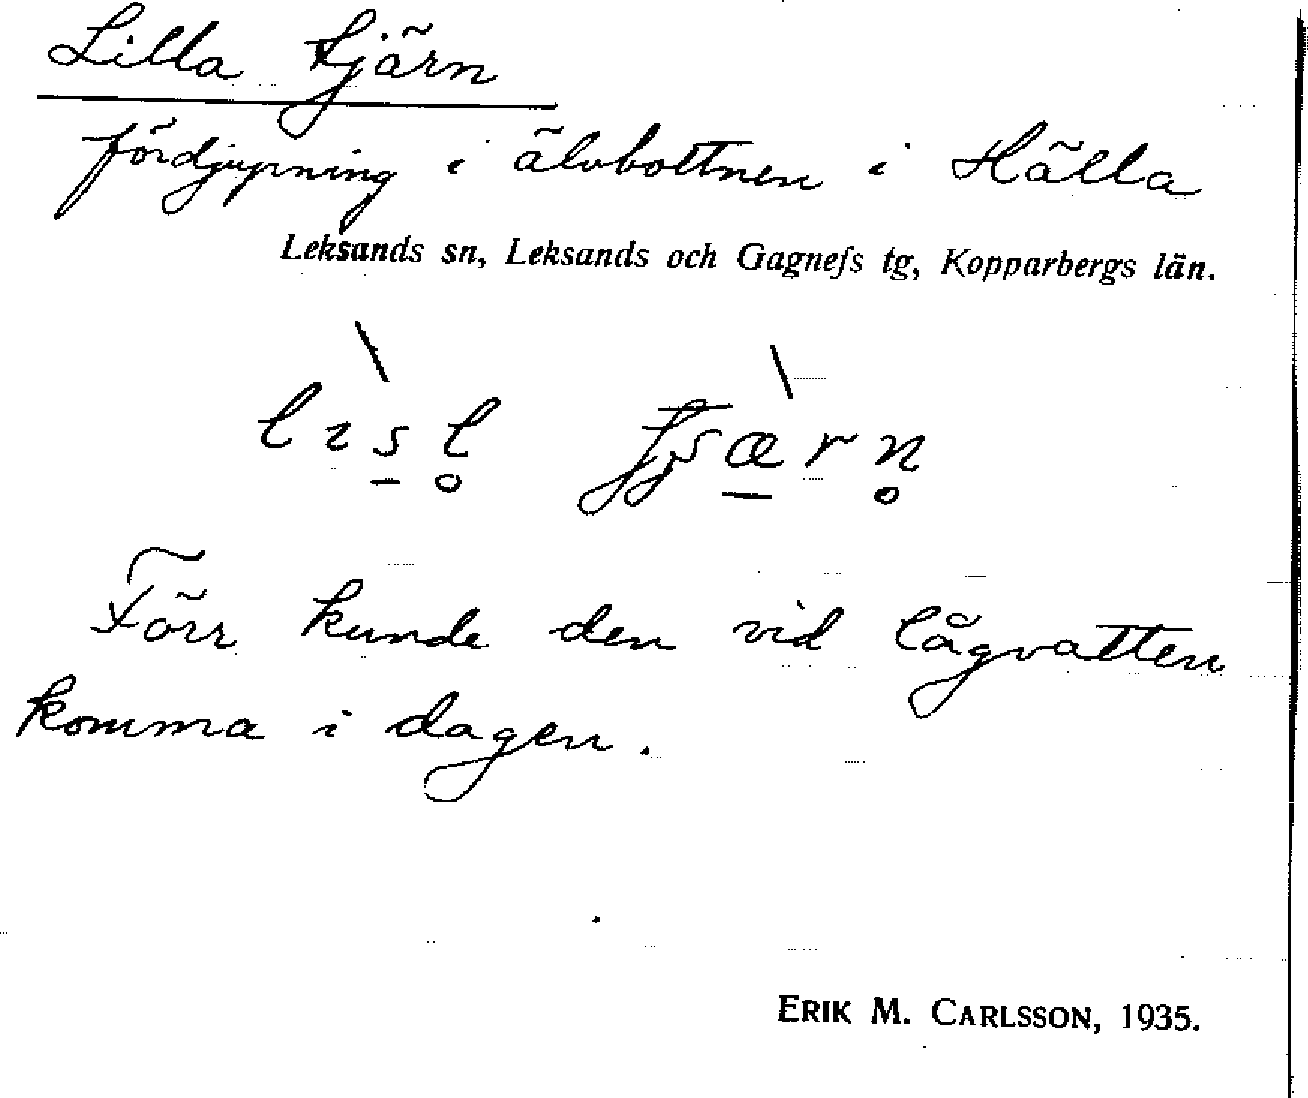 Lilla tjärn
fördjupning i älvbottnen i Hälla
Leksands sn, Leksands och Gagnefs tg, Kopparbergs län.
Förr kunde den vid lågvatten
komma i dagen.
ERIK M. CARLSSON, 1935.